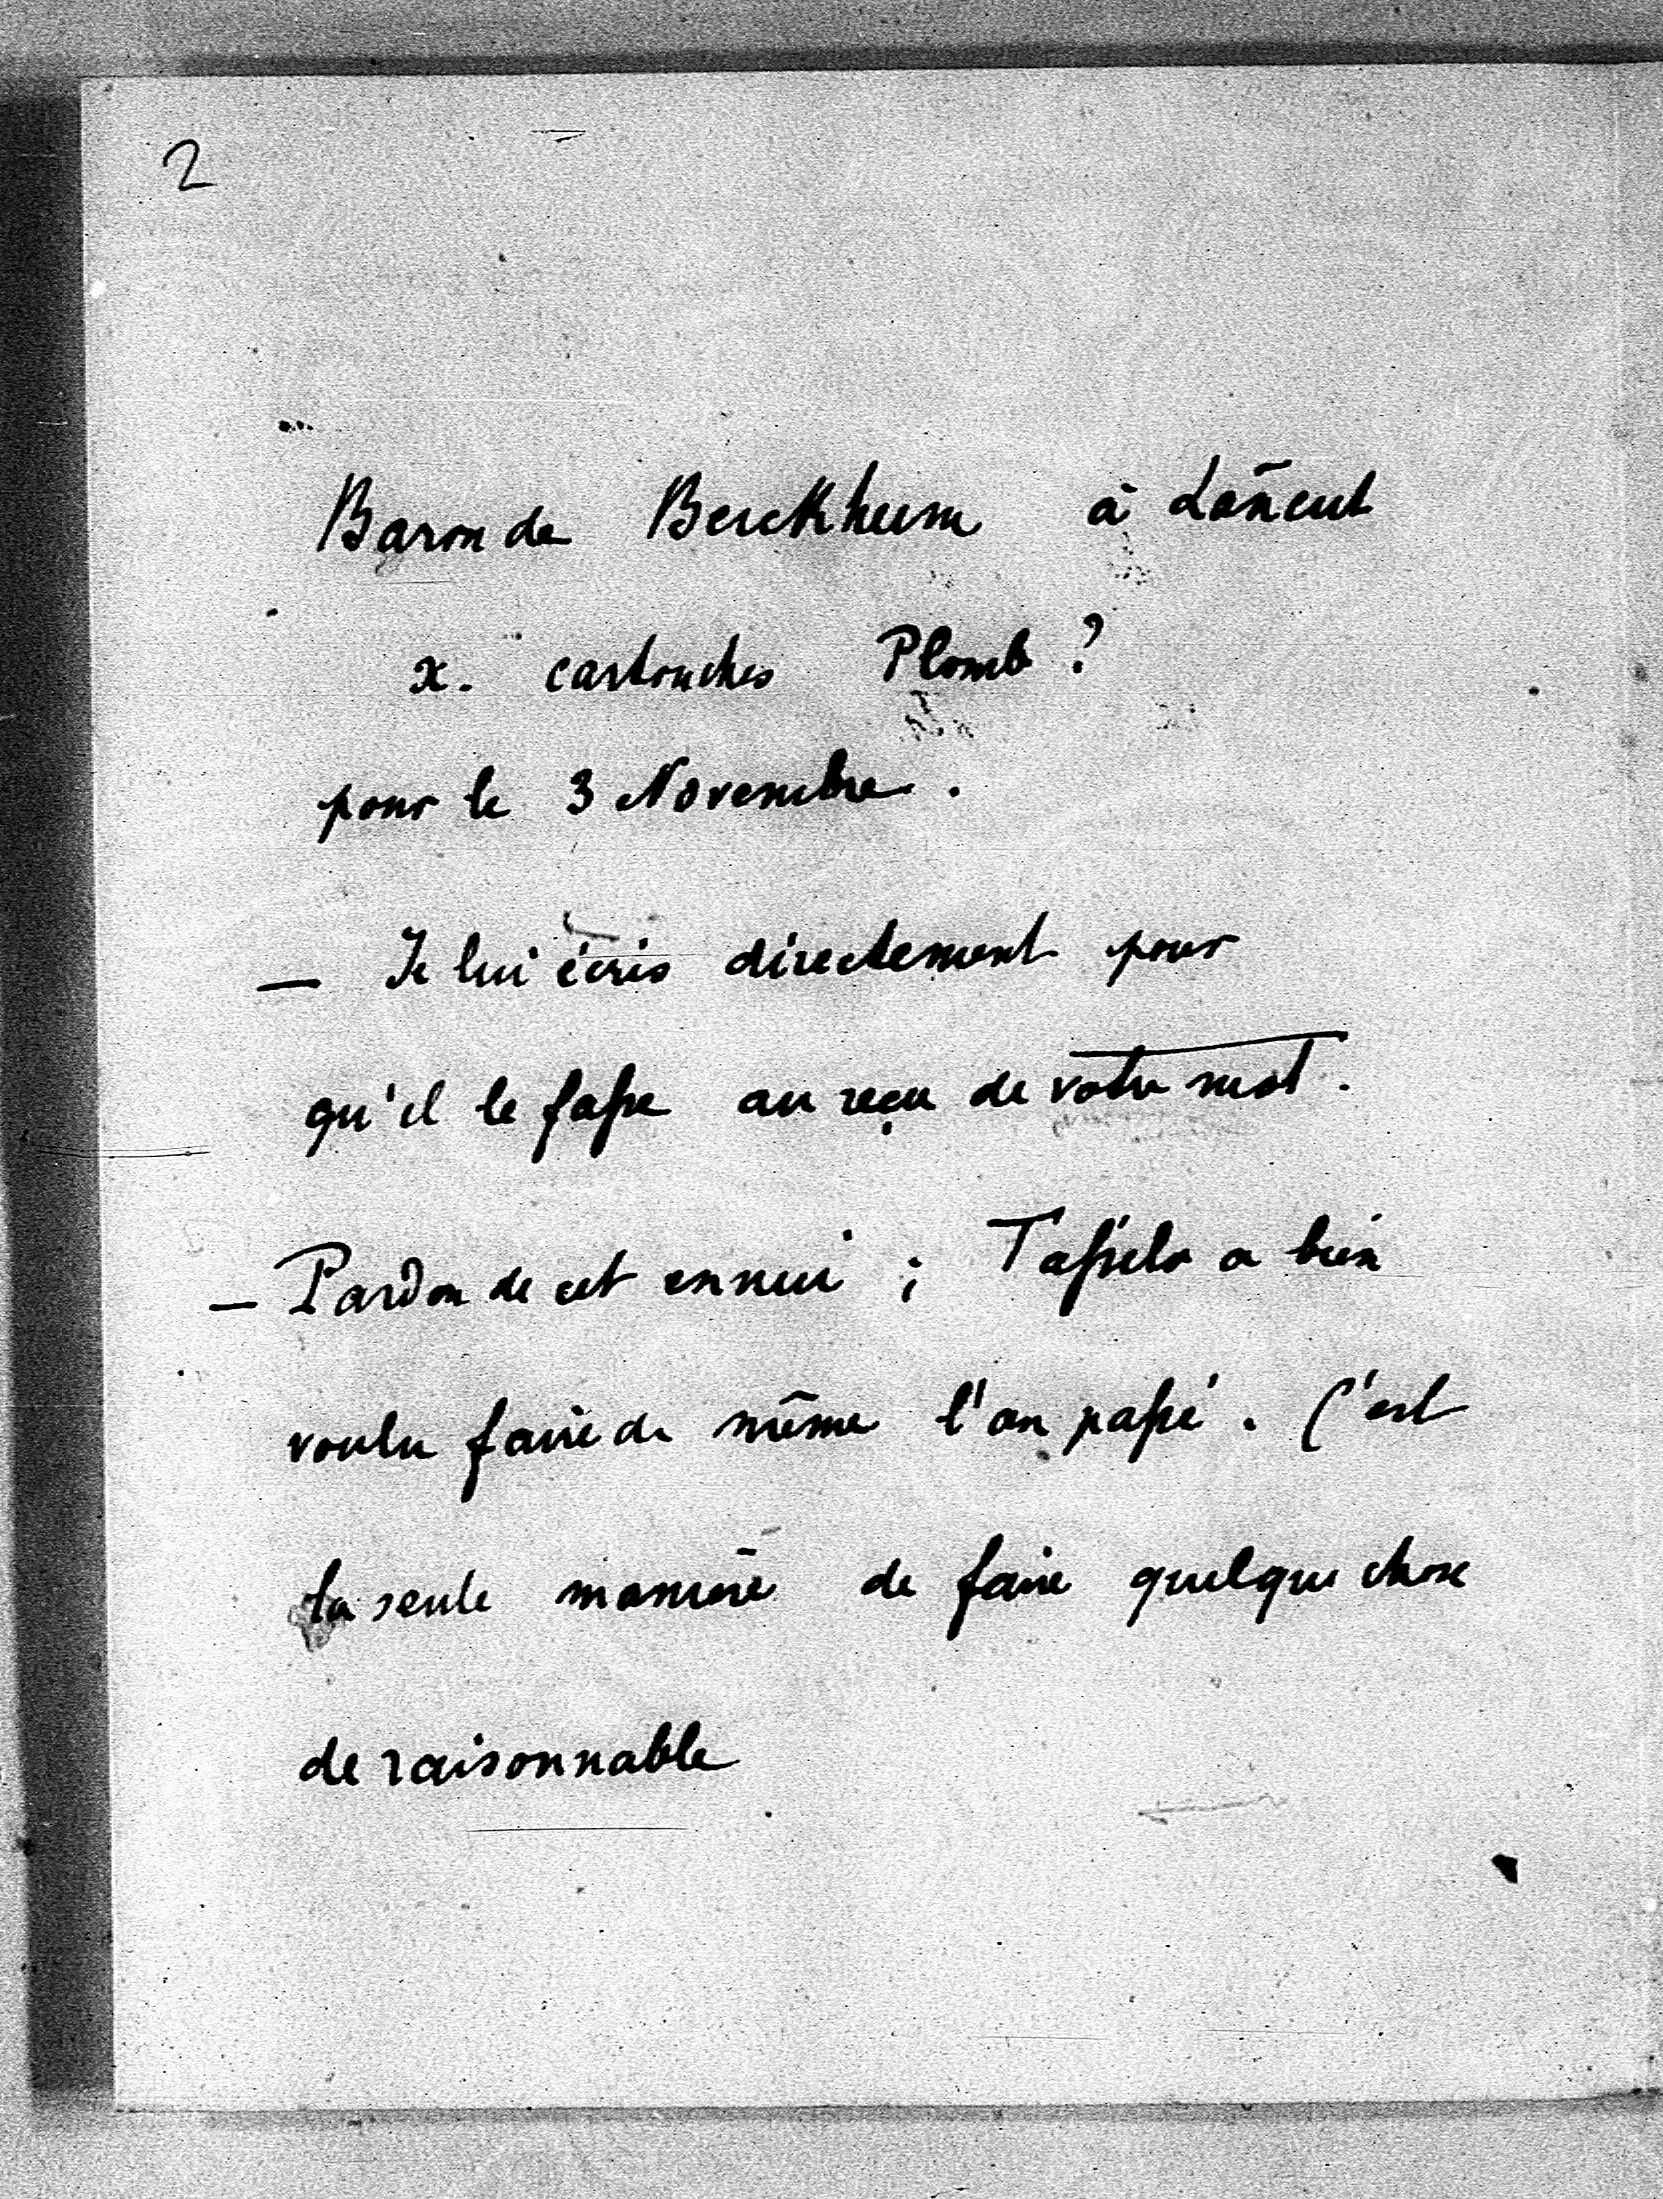 2
Baron de Berckheim à Łańcut
x. cartouches Plomb ?
pour le 3 Novembre.
— Je lui écris directement pour
qu'il le fasse au reçu de votre mot.
— Pardon de cet ennui ; a bien
voulu faire de même l'an passé. C'est
la seule manière de faire quelque chose
de raisonnable